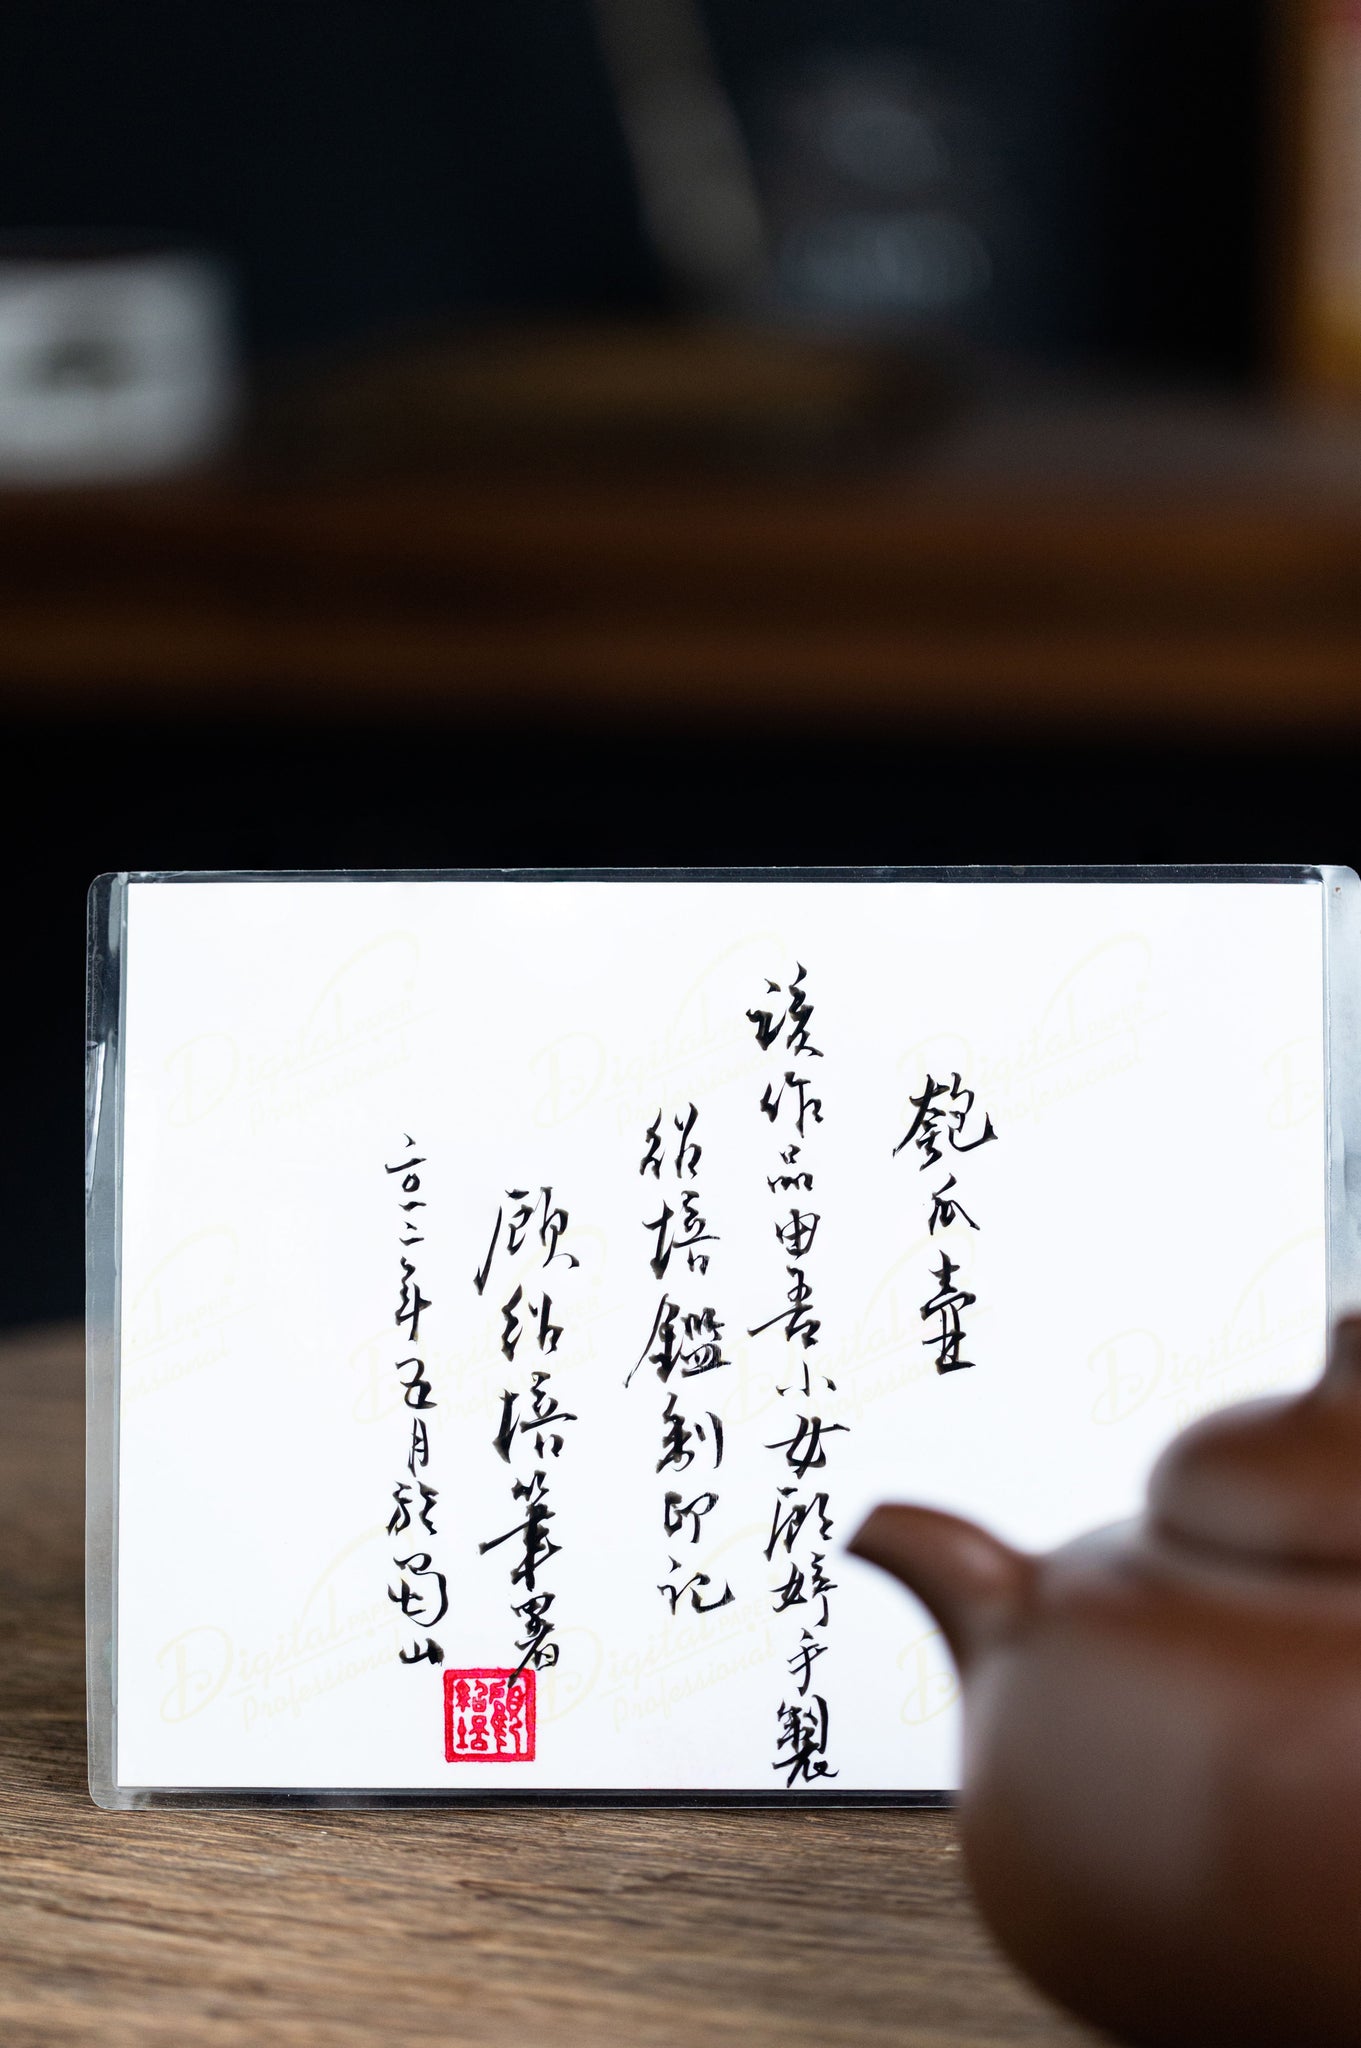 匏瓜壶
該作品由吾小女顾婷手製
绍培鑑制印記
顾绍培筆署
二〇一二年五月於蜀山
顾绍培
Digital PAPER
Professional